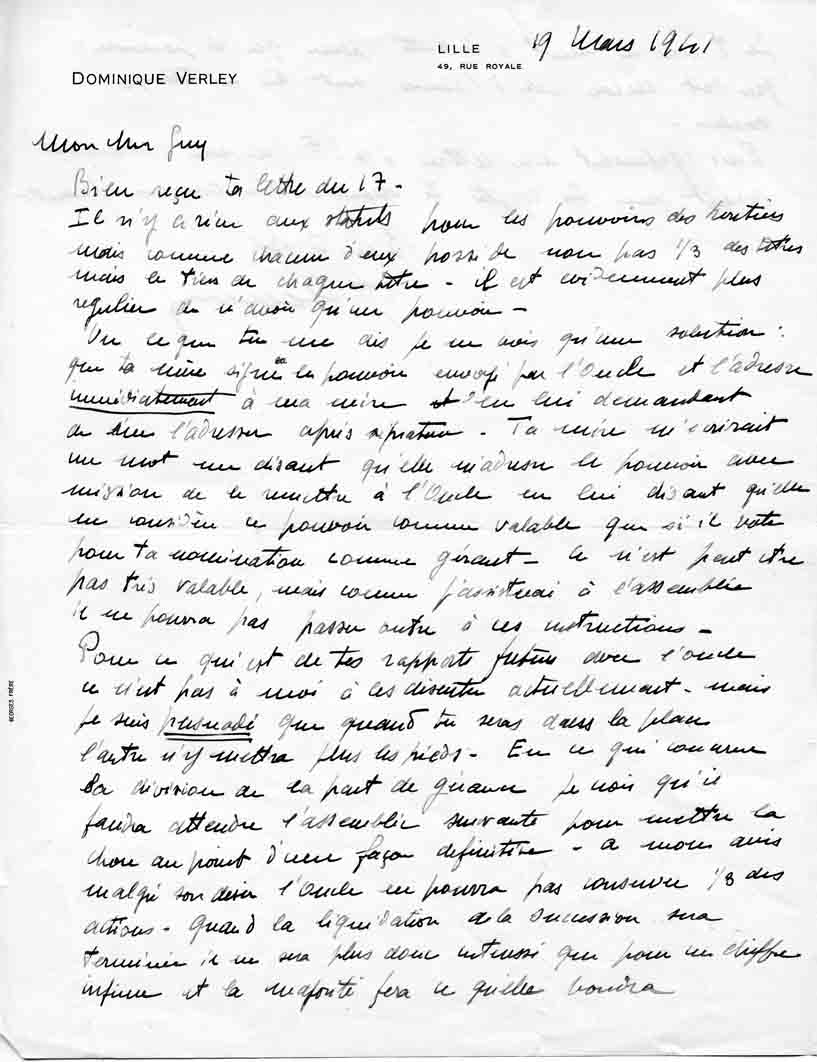 LILLE 19 Mars 1941
49, RUE ROYALE
DOMINIQUE VERLEY
Mon cher Guy
Bien reçu ta lettre du 17 -
Il n'y a rien aux statuts pour les pouvoirs des héritiers
mais comme chacun d'eux possède non pas 1/3 des titres
mais le tiers de chaque titre - il est evidemment plus
regulier de n'avoir qu'un pouvoir -
Vu ce que tu me dis je ne vois qu'une solution :
que ta mère signe le pouvoir envoyé par l'Oncle et l'adresse
immédiatement à ma mère en lui demandant
de me l'adresser après signature - Ta mère m'écrirait
un mot me disant qu'elle m'adresse le pouvoir avec
mission de le remettre à l'Oncle en lui disant qu'elle
ne considère ce pouvoir comme valable que si il vote
pour ta nomination comme gérant - Ce n'est peut etre
pas très valable, mais comme j'assisterai à l'assemblée
il ne pourra pas passer outre à ces instructions -
Pour ce qui est de tes rapports futurs avec l'oncle
ce n'est pas à moi à les discuter actuellement - mais
je suis persuadé que quand tu seras dans la place
l'autre n'y mettra plus les pieds - En ce qui concerne
la division de la part de gérance je crois qu'il
faudra attendre l'assemblée suivante pour mettre la
chose au point d'une façon definitive - a mon avis
malgré son désir l'Oncle ne pourra pas conserver 1/3 des
actions - Quand la liquidation de la succession sera
terminée il ne sera plus donc intéressé que pour un chiffre
infime et la majorité fera ce qu'elle voudra
GEORGES FRÈRE